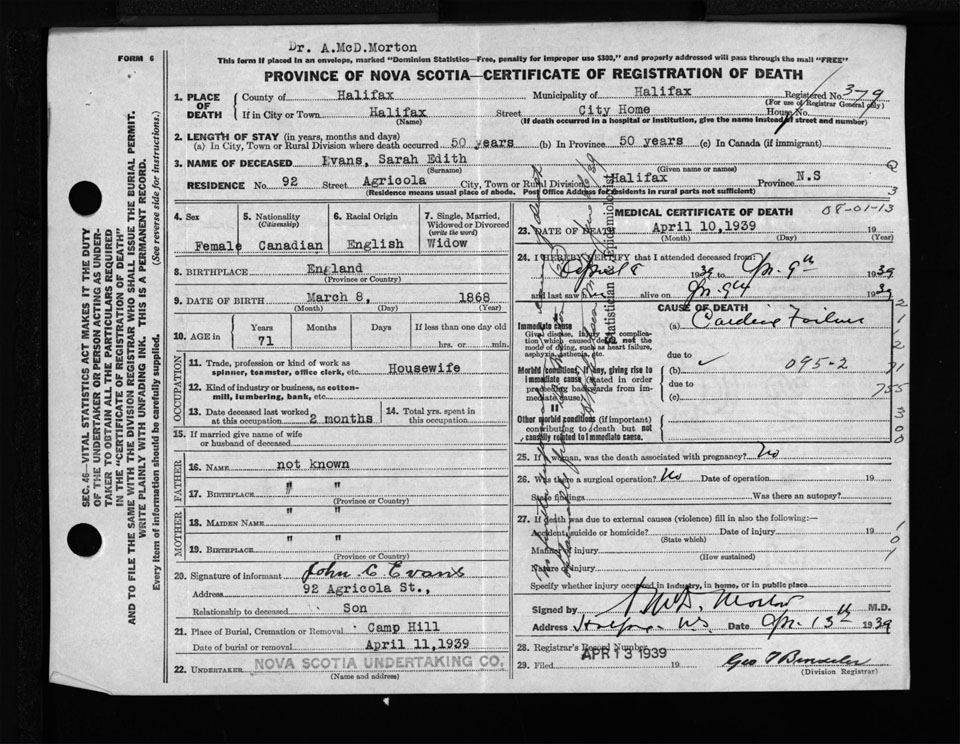 Dr. A.McD.Morton
FORM 6
This form if placed in an envelope, marked "Dominion Statistics—Free, penalty for improper use $300," and properly addressed will pass through the mail "FREE"
PROVINCE OF NOVA SCOTIA—CERTIFICATE OF REGISTRATION OF DEATH
1. PLACE OF DEATH County of Halifax Municipality of Halifax Registered No. 379
(For use of Registrar General only)
If in City or Town Halifax Street City Home House No.
(Name) (If death occurred in a hospital or institution, give the name instead of street and number)
2. LENGTH OF STAY (in years, months and days)
(a) In City, Town or Rural Division where death occurred 50 years (b) In Province 50 years (c) In Canada (if immigrant)
3. NAME OF DECEASED Evans, Sarah Edith
(Surname) (Given name or names)
RESIDENCE No. 92 Street Agricola City, Town or Rural Division Halifax Province N.S
(Residence means usual place of abode. Post Office Address for residents in rural parts not sufficient)
4. Sex Female
5. Nationality (Citizenship) Canadian
6. Racial Origin English
7. Single, Married, Widowed or Divorced (write the word) Widow
8. BIRTHPLACE England
(Province or Country)
9. DATE OF BIRTH March 8, 1868
(Month) (Day) (Year)
10. AGE in Years Months Days If less than one day old
71 hrs. or min.
OCCUPATION
11. Trade, profession or kind of work as spinner, teamster, office clerk, etc. Housewife
12. Kind of industry or business, as cotton-mill, lumbering, bank, etc.
13. Date deceased last worked at this occupation 2 months
14. Total yrs. spent in this occupation
15. If married give name of wife or husband of deceased
FATHER
16. NAME not known
17. BIRTHPLACE " "
(Province or Country)
MOTHER
18. MAIDEN NAME " "
19. BIRTHPLACE " "
(Province or Country)
20. Signature of informant John C Evans
Address 92 Agricola St.,
Relationship to deceased Son
21. Place of Burial, Cremation or Removal Camp Hill
Date of burial or removal April 11,1939
22. UNDERTAKER NOVA SCOTIA UNDERTAKING CO.
(Name and address)
MEDICAL CERTIFICATE OF DEATH 08-01-13
23. DATE OF DEATH April 10,1939
(Month) (Day) (Year)
24. I HEREBY CERTIFY that I attended deceased from:
April 8 1939 to Ap. 9th 1939
and last saw h alive on Ap. 9th 1939
CAUSE OF DEATH
Immediate cause (a) Cardiac Failure
Give disease, injury or complication which caused death, not the mode of dying, such as heart failure, asphyxia, asthenia, etc.
due to
Morbid conditions, if any, giving rise to immediate cause (stated in order preceding backwards from immediate cause). (b) 095-2
due to
(c)
II
Other morbid conditions (if important) contributing to death but not causally related to immediate cause.
25. If a woman, was the death associated with pregnancy? No
26. Was there a surgical operation? No Date of operation 19
State findings Was there an autopsy?
27. If death was due to external causes (violence) fill in also the following:—
Accident, suicide or homicide? Date of injury 19
(State which)
Manner of injury
(How sustained)
Nature of injury
Specify whether injury occurred in industry, in home, or in public place
Signed by A McD. Morton M.D.
Address Halifax N.S. Date Ap. 13th 1939
28. Registrar's Record Number
29. Filed APR 13 1939 19
(Division Registrar)
Statistician Epidemiologist
SEC. 46—VITAL STATISTICS ACT MAKES IT THE DUTY
OF THE UNDERTAKER OR PERSON ACTING AS UNDER-
TAKER TO OBTAIN ALL THE PARTICULARS REQUIRED
IN THE "CERTIFICATE OF REGISTRATION OF DEATH"
AND TO FILE THE SAME WITH THE DIVISION REGISTRAR WHO SHALL ISSUE THE BURIAL PERMIT.
WRITE PLAINLY WITH UNFADING INK. THIS IS A PERMANENT RECORD.
Every item of information should be carefully supplied. (See reverse side for instructions.)